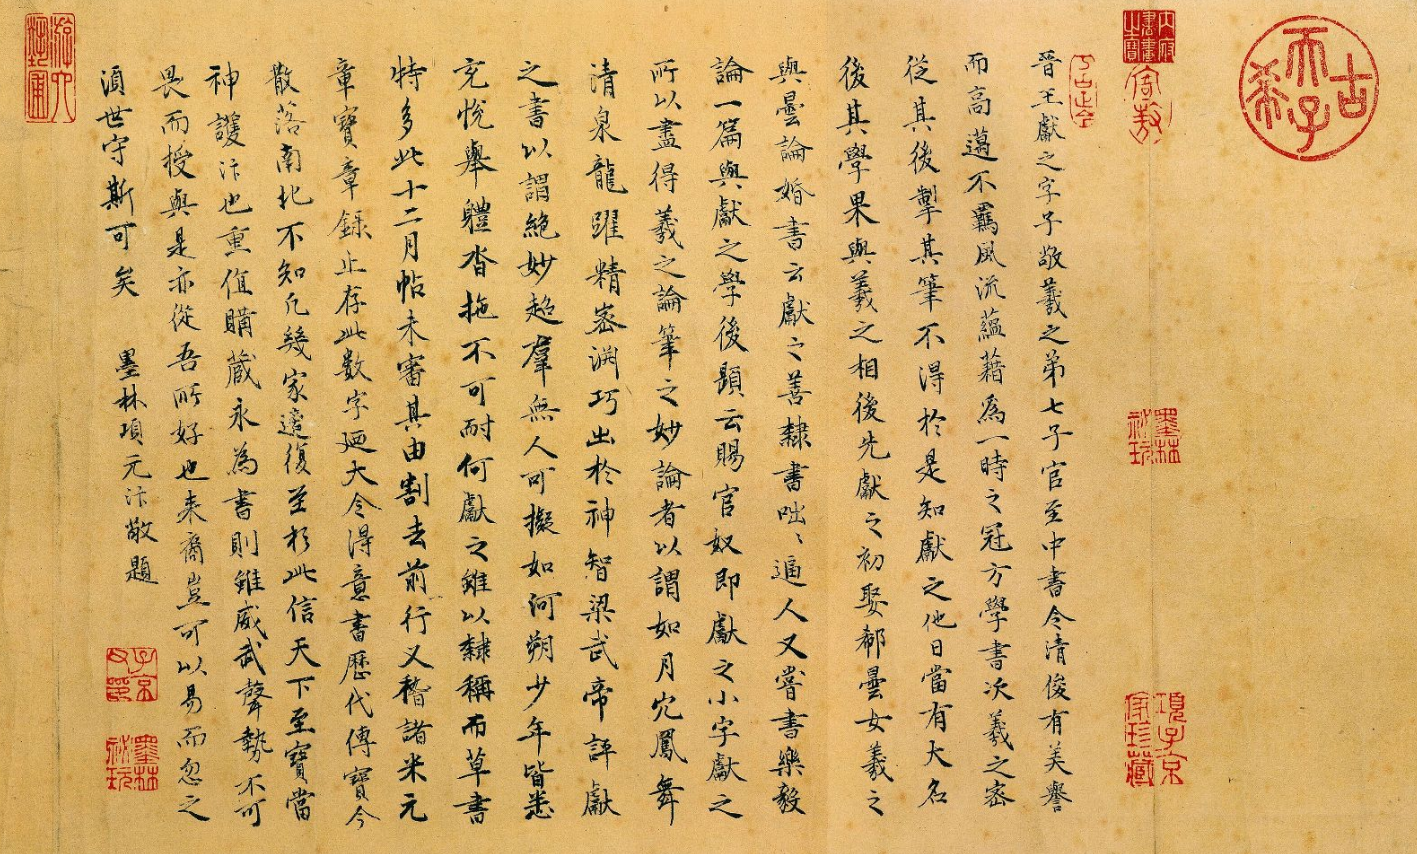 古希天子
內府書畫之寶
寄敖
晉王獻之字子敬羲之弟七子官至中書令清俊有美譽
而高邁不羈風流蘊藉為一時之冠方學書次羲之密
從其後掣其筆不得於是知獻之他日當有大名
後其學果與羲之相後先獻之初娶郗曇女羲之
與曇論婚書云獻之善隸書咄、逼人又嘗書樂毅
論一篇與獻之學後題云賜官奴即獻之小字獻之
所以盡得羲之論筆之妙論者以謂如月穴鳳舞
清泉龍躍精密淵巧出於神智梁武帝評獻
之書以謂絕妙超羣無人可擬如河朔少年皆悉
充悅舉體沓拖不可耐何獻之雖以隸稱而草書
特多此十二月帖未審其由割去前行又稽諸米元
章寶章錄止存此數字廼大令得意書歷代傳寶今
散落南北不知凡幾家遂復至於此信天下至寶當
神護汴也重值購藏永為書則雖威武聲勢不可
畏而授與是亦從吾所好也来裔豈可以易而忽之
須世守斯可矣 墨林項元汴敬題
墨林祕玩
項子京家珍藏
子京父印
墨林祕玩